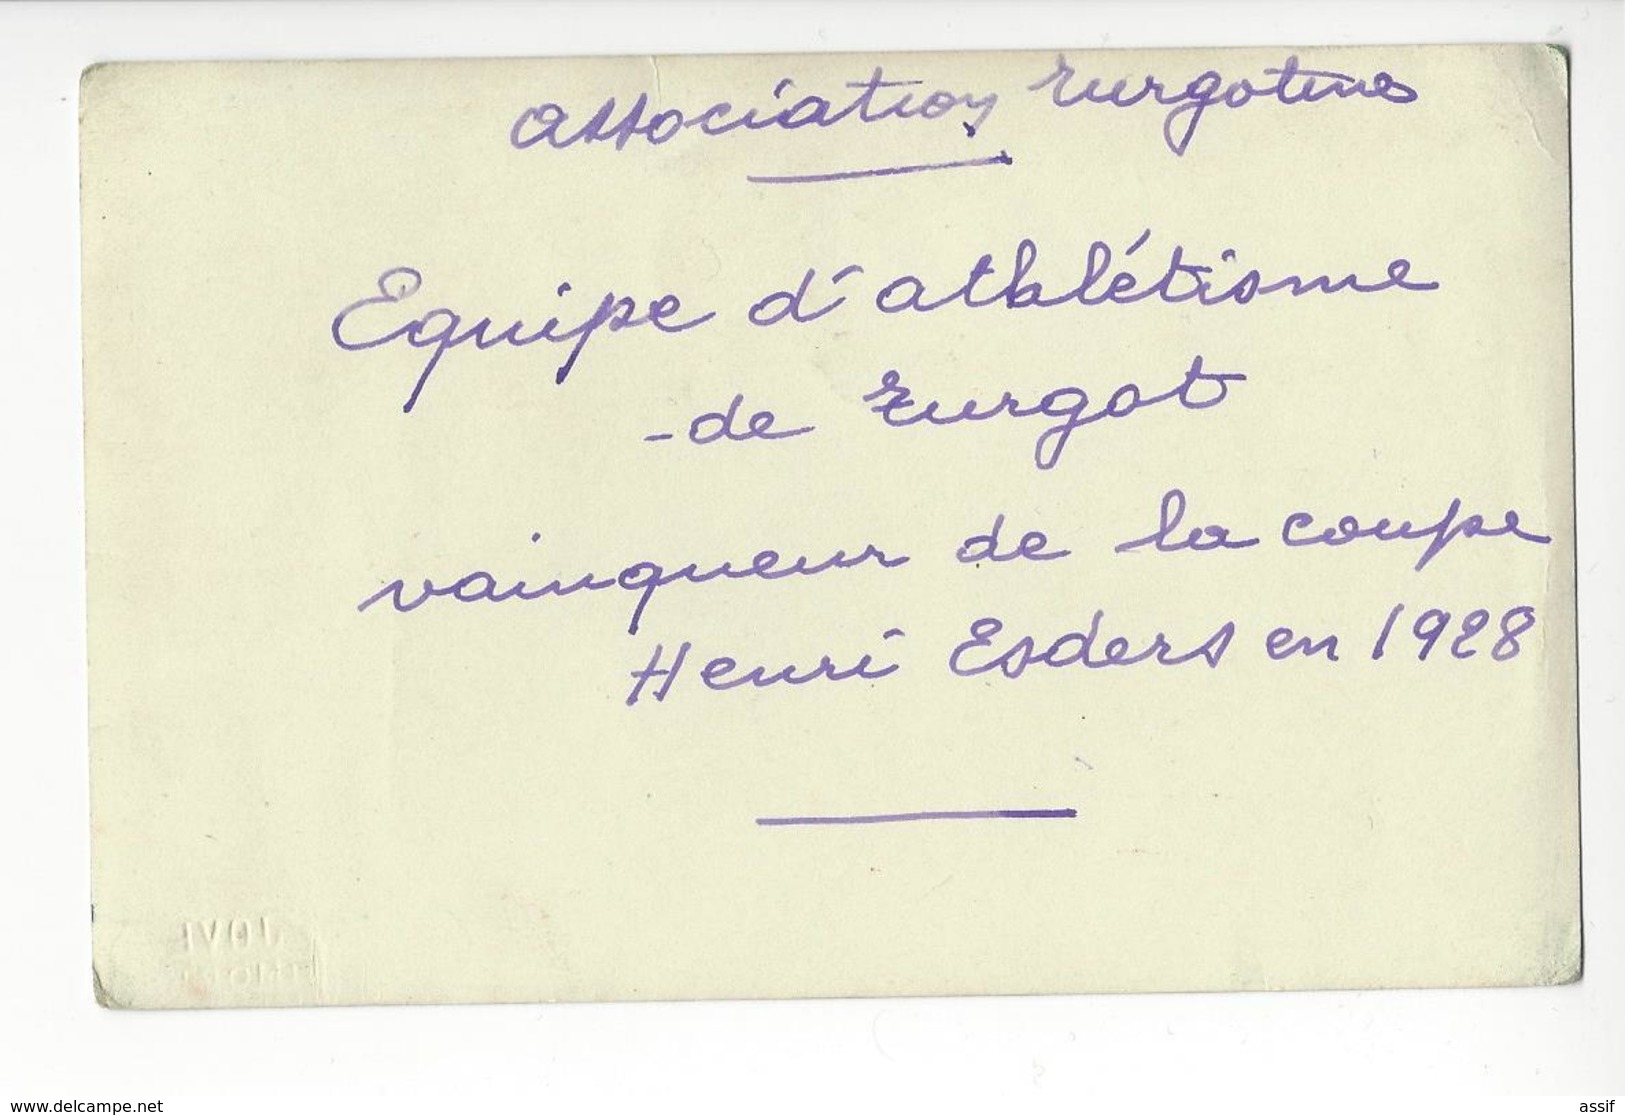 Association Turgotine
Equipe d'athlétisme
- de Turgot
vainqueur de la coupe
Henri Esders en 1928
www.delcampe.net
assif